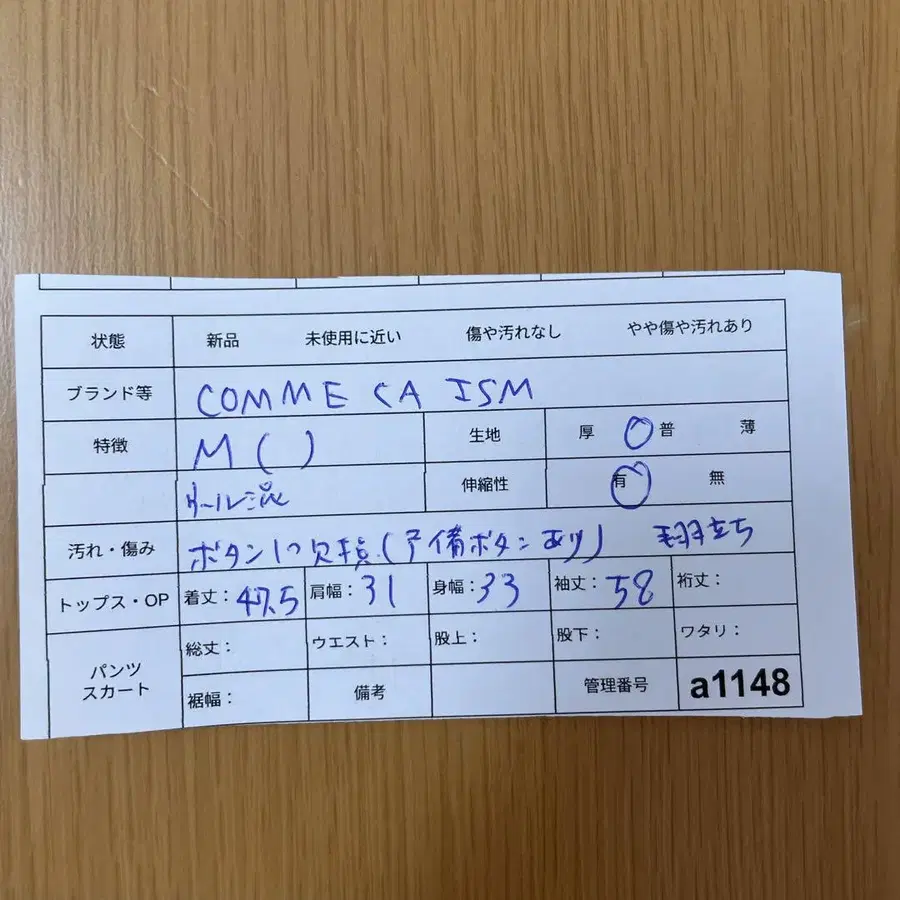 状態 新品 未使用に近い 傷や汚れなし やや傷や汚れあり
ブランド等 COMME CA ISM
特徴 M ( ) 生地 厚 普 薄
ウール混 伸縮性 有 無
汚れ・傷み ボタン1つ欠損(予備ボタンあり) 立ち
トップス・OP 着丈:47.5 肩幅:31 身幅:33 袖丈:58 裄丈:
パンツ スカート 総丈: ウエスト: 股上: 股下: ワタリ:
裾幅: 備考 管理番号 a1148